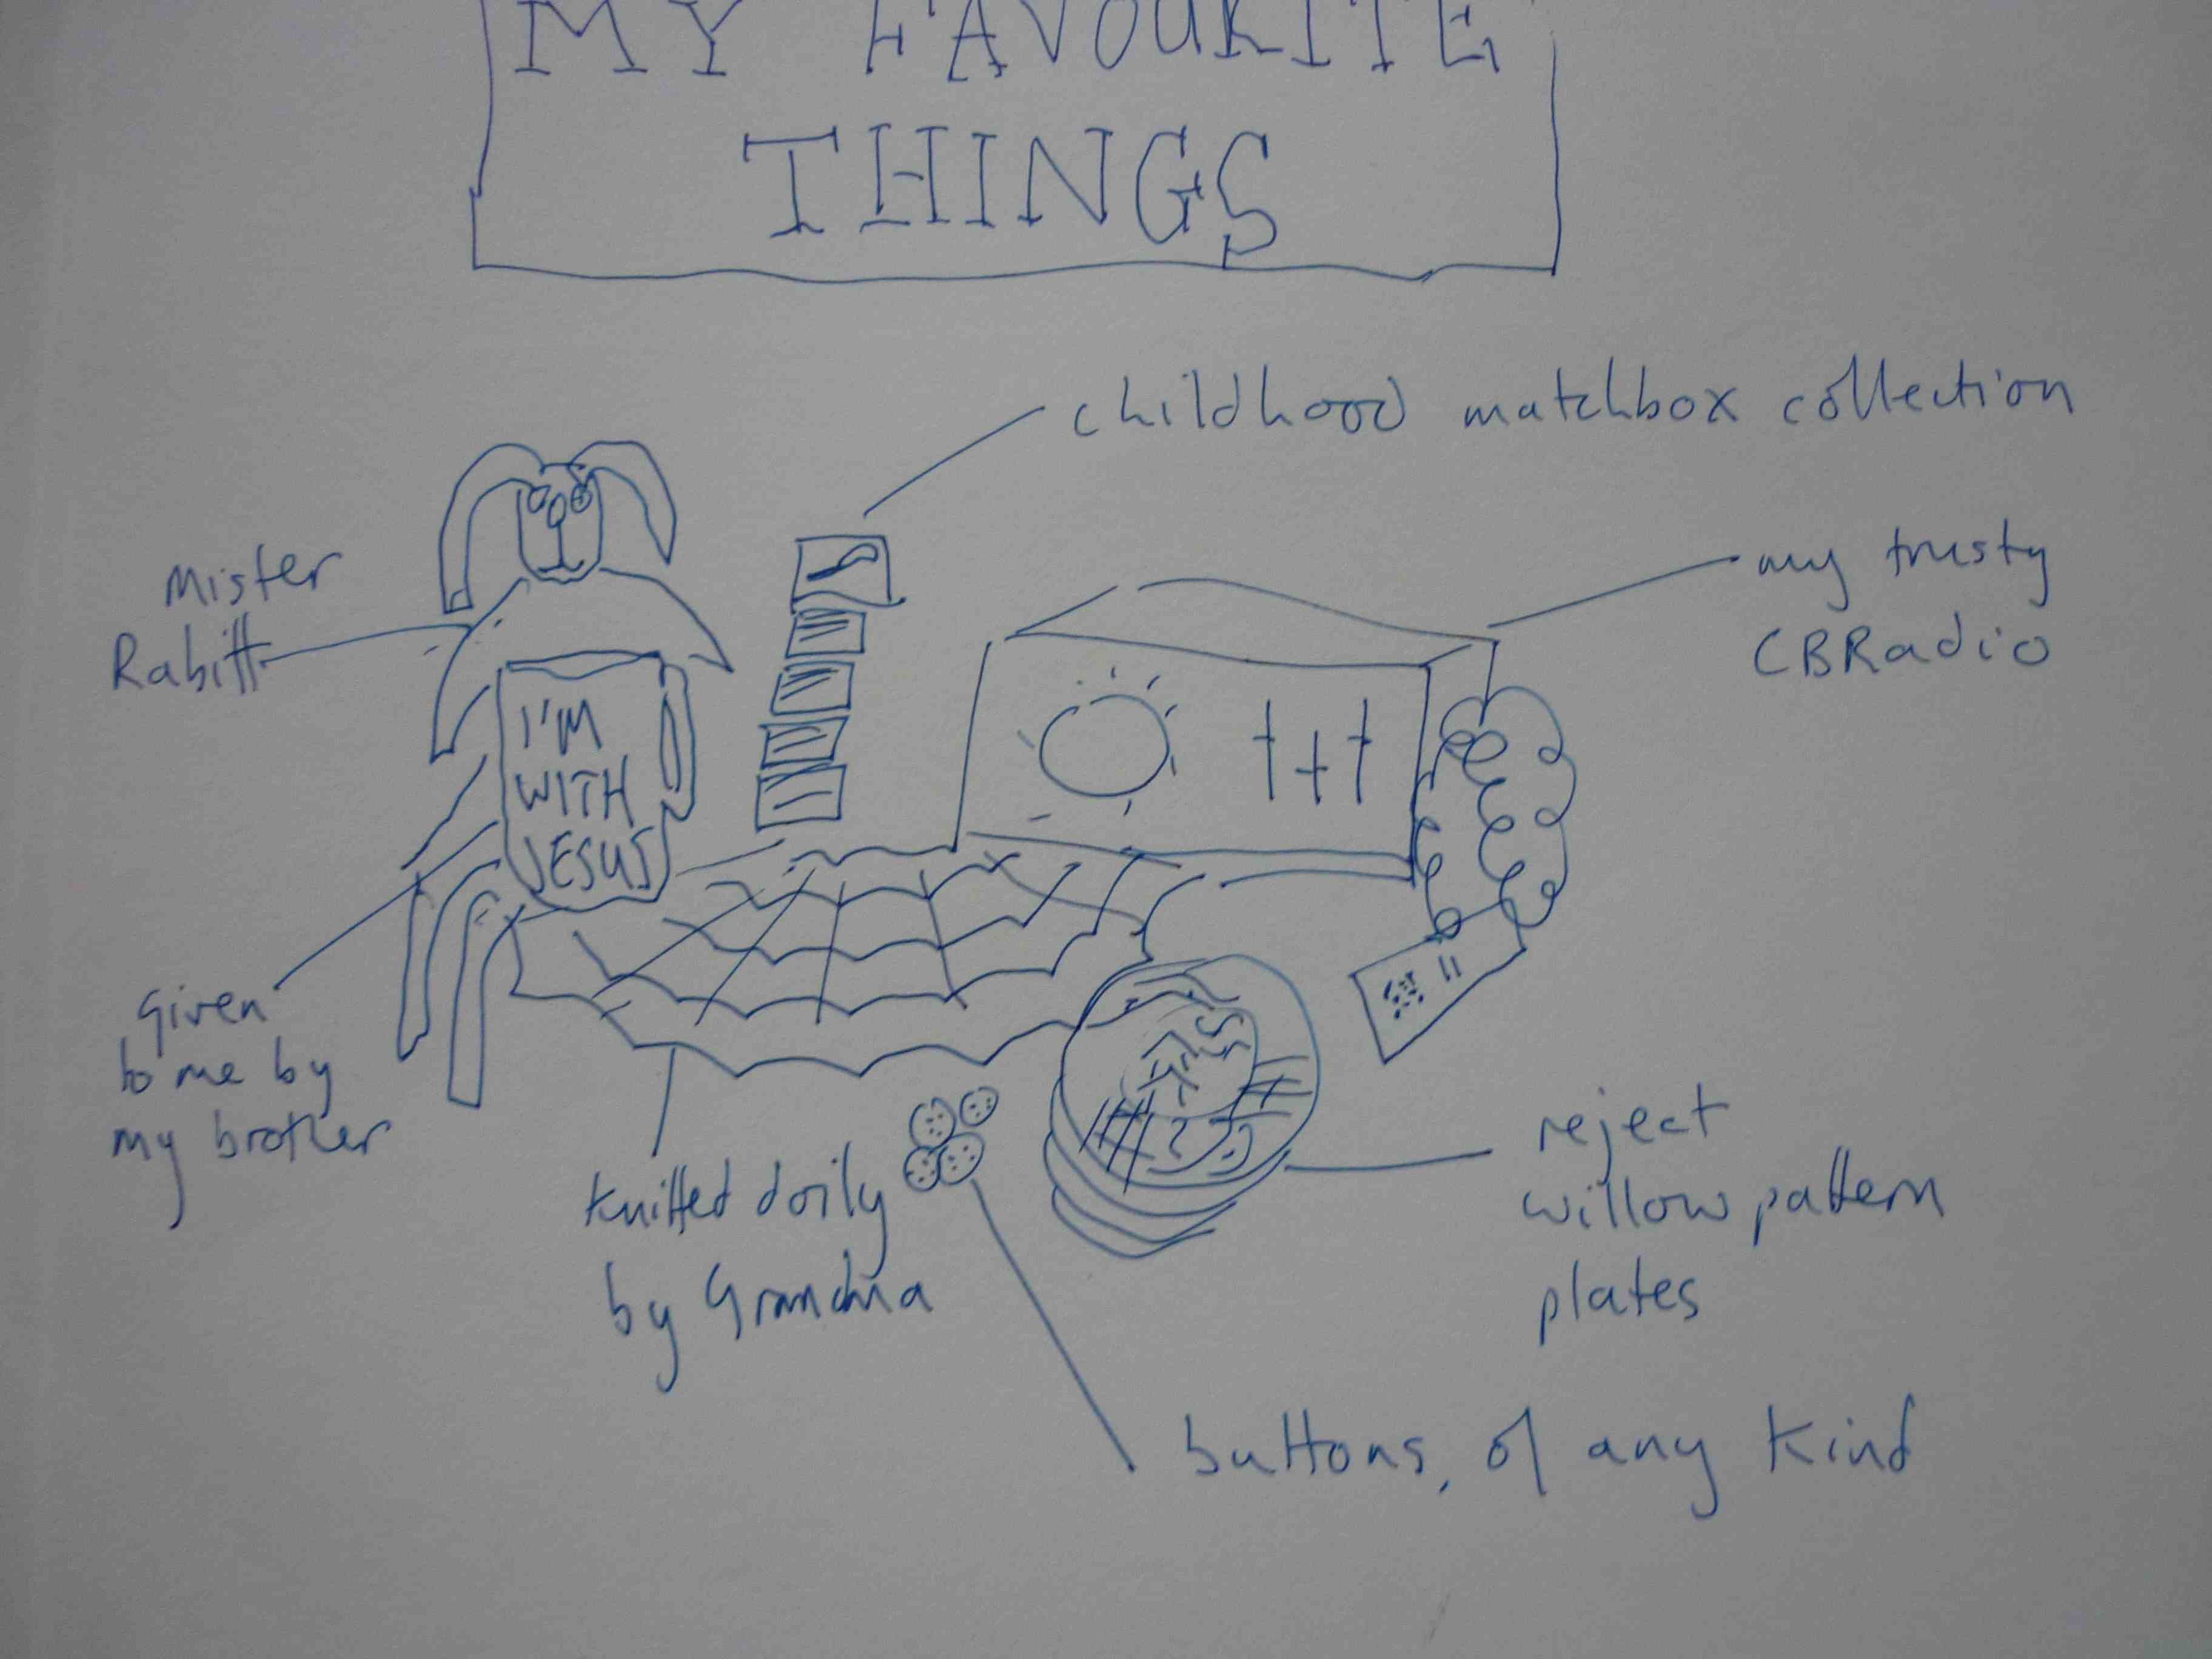 MY FAVOURITE
THINGS
childhood matchbox collection
my trusty
CBRadio
Mister
Rabitt
I'M
WITH
JESUS
Given
to me by
my brother
knitted doily
by Grandma
reject
willow pattern
plates
buttons, of any kind